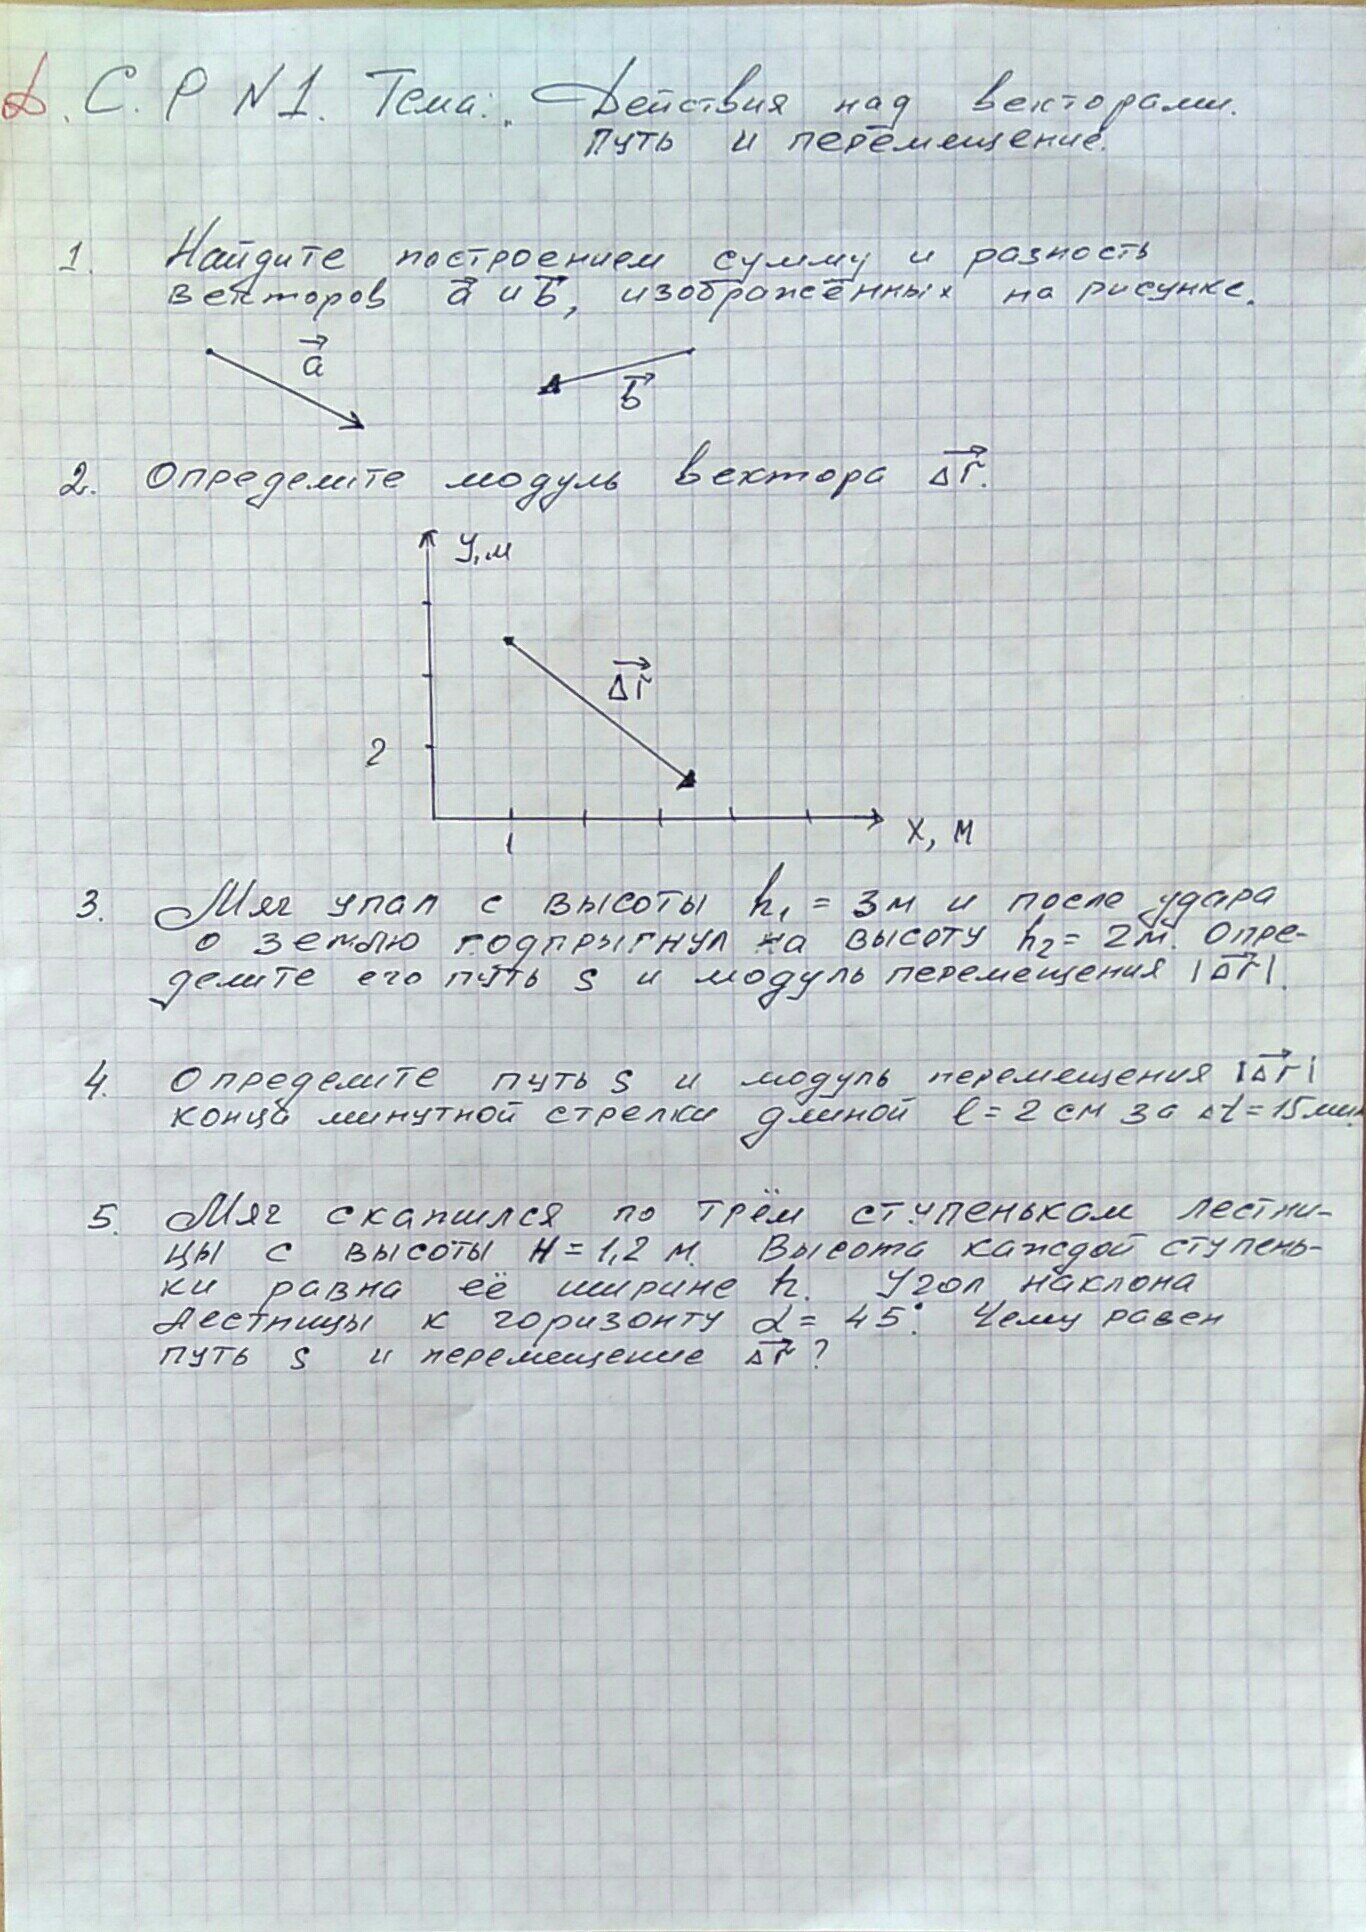 Д. С. Р №1. Тема: Действия над векторами.
Путь и перемещение.
1. Найдите построением сумму и разность
векторов a⃗ и b⃗, изображённых на рисунке.
a⃗
b⃗
2. Определите модуль вектора Δr⃗.
У,м
Δr⃗
2
1
X, м
3. Мяч упал с высоты h₁ = 3м и после удара
о землю подпрыгнул на высоту h₂ = 2м. Опре-
делите его путь s и модуль перемещения |Δr⃗|.
4. Определите путь s и модуль перемещения |Δr⃗|
конца минутной стрелки длиной l = 2 см за Δt = 15мин.
5. Мяч скатился по трём ступенькам лестни-
цы с высоты H = 1,2 м. Высота каждой ступень-
ки равна её ширине h. Угол наклона
лестницы к горизонту α = 45°. Чему равен
путь s и перемещение Δr⃗?